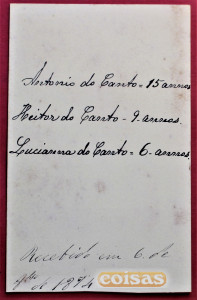 Antonio do Canto = 15 annos
Heitor do Canto = 9 annos.
Lucianna do Canto = 6 annos.
Recebido em 6 de
de 19
coisas